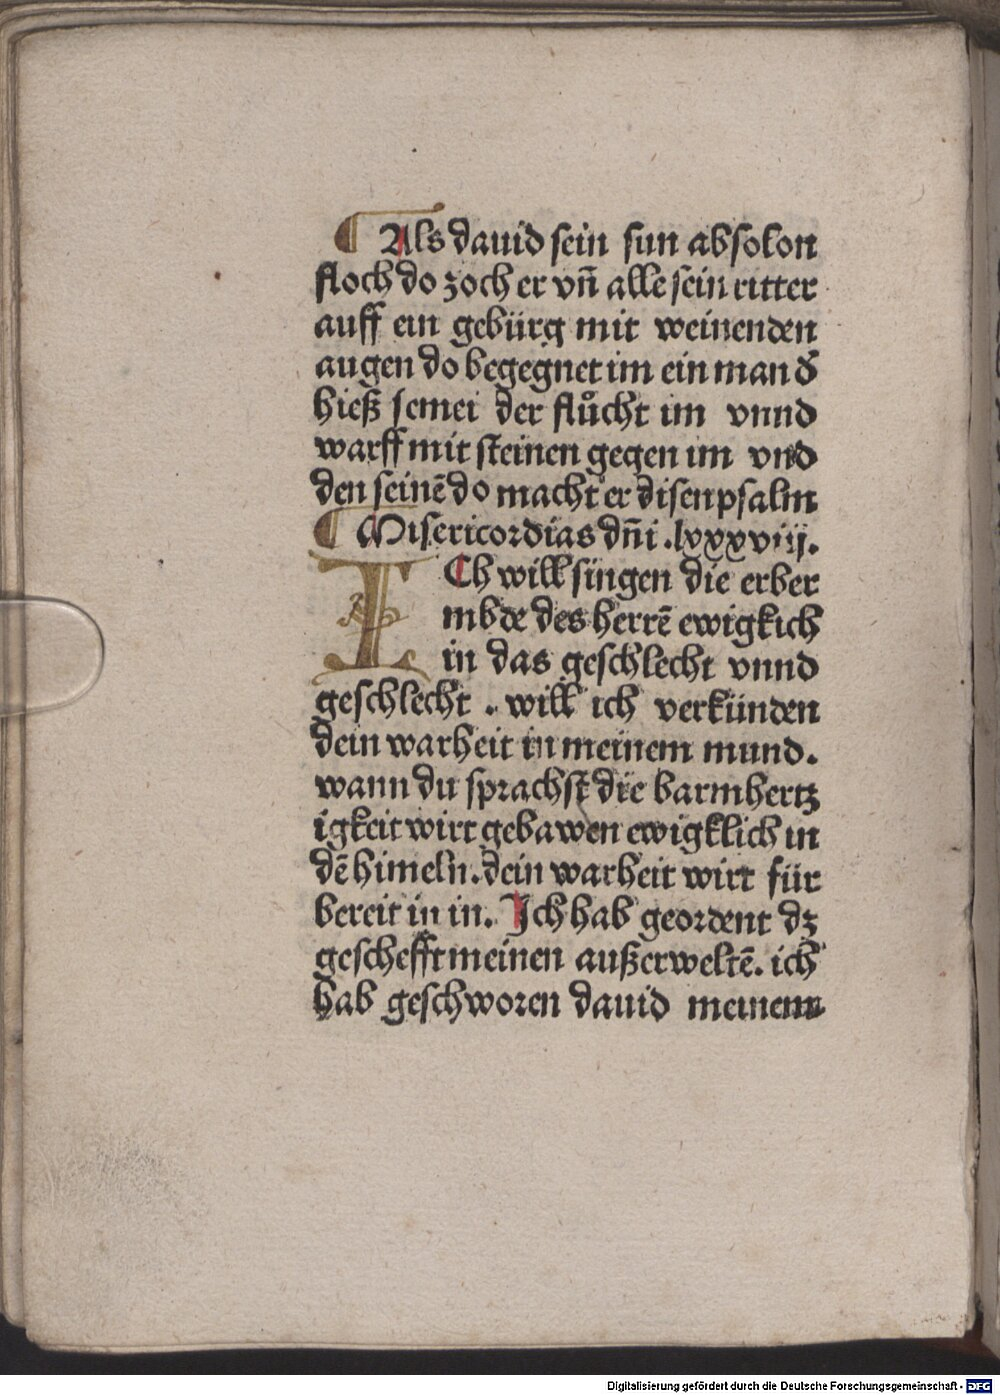 ¶ Als dauid sein sun absolon
floch do zoch er vnn̄ alle sein ritter
auff ein gebürg mit weinenden
augen do begegnet im ein man d̕
hieß semei der flůcht im vnnd
warff mit steinen gegen im vnd
den seinē do macht er disen psalm
¶ Misericordias dn̄i .lxxxviij.
ICh will singen die erber
mbde des herrē ewigkich
in das geschlecht vnnd
geschlecht . will ich verkünden
dein warheit in meinem mund.
wann du sprachst die barmhertz
igkeit wirt gebawen ewigklich in
dē himeln. dein warheit wirt für
bereit in in. Ich hab geordent dz
geschefft meinen außerweltē. ich
hab geschworen dauid meinem
Digitalisierung gefördert durch die Deutsche Forschungsgemeinschaft - DFG